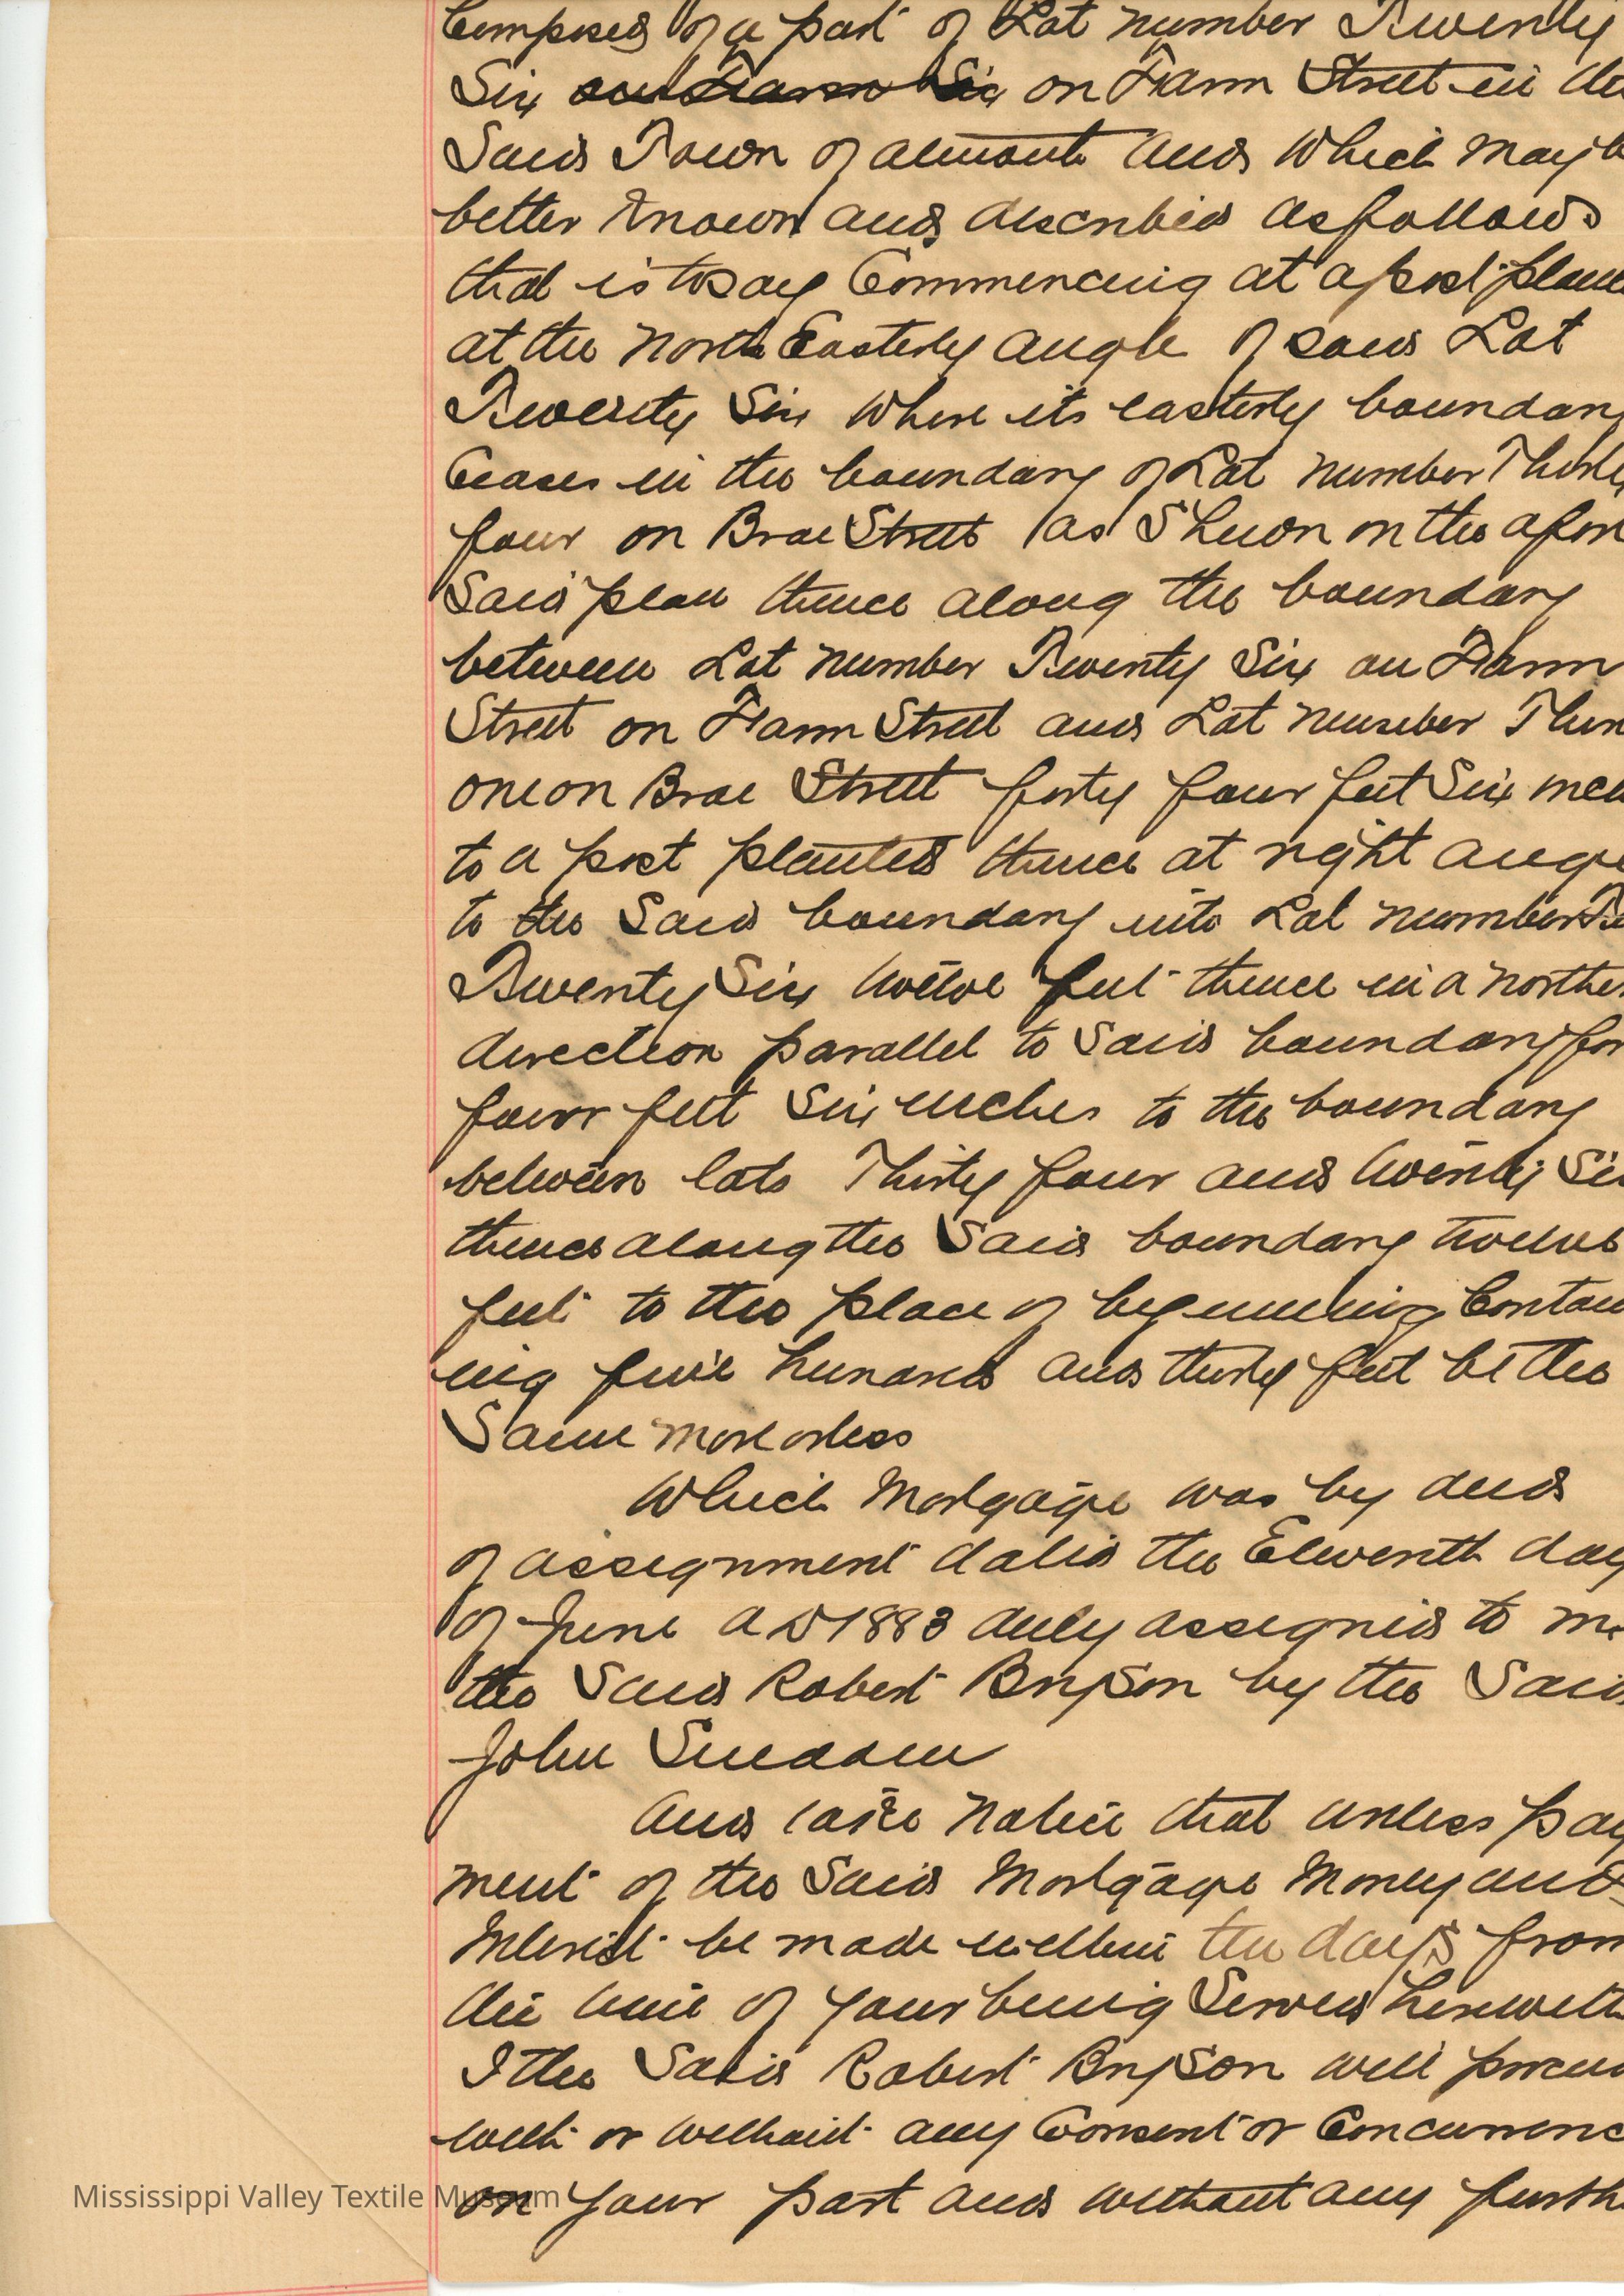 Composed of a part of Lot number Twenty
Six on Farm Street in the
Said Town of almonte and Which may b
better known and described as follows
that is to say Commencing at a post plan
at the North Easterly angle of said Lot
Twenty Six Where its easterly boundary
Ceases in the boundary of Lot number Thirty
four on Brae Street as Shewn on the afore
Said plan thence along the boundary
between Lot number Twenty Six on Farm
Street on Farm Street and Lot number Thir
one on Brae Street forty four feet Six inch
to a post planted thence at right angle
to the Said boundary into Lot number Tw
Twenty Six twelve feet thence in a norther
direction parallel to Said boundary for
four feet Six inches to the boundary
between lots Thirty four and twenty Six
thence along the Said boundary twelve
feet to the place of beginning Contain
ing five hundred and thirty feet be the
Same more or less
Which Mortgage was by deed
of assignment dated the Eleventh day
of June A D 1883 duly assigned to me
the Said Robert Bryson by the Said
John Sneddon
And take Notice that unless pay
ment of the Said Mortgage Money and
Interest be made within ten days from
the time of your being Served herewith
I the Said Robert Bryson will procee
with or without any Consent or Concurrenc
on your part and without any furth
Mississippi Valley Textile Museum